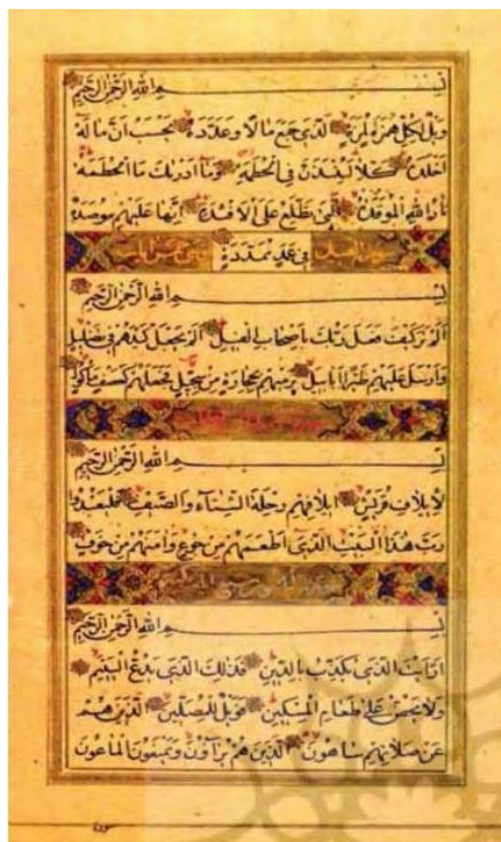 بِسْمِ اللهِ الرَّحْمٰنِ الرَّحِيمِ
وَيْلٌ لِكُلِّ هُمَزَةٍ لُمَزَةٍ الَّذِى جَمَعَ مَالًا وَعَدَّدَهُ يَحْسَبُ اَنَّ مَالَهُ
اَخْلَدَهُ كَلَّا لَيُنْبَذَنَّ فِى الْحُطَمَةِ وَمَا اَدْرٰيكَ مَا الْحُطَمَةُ
نَارُ اللهِ الْمُوقَدَةُ الَّتِى تَطَّلِعُ عَلَى الْاَفْئِدَةِ اِنَّهَا عَلَيْهِمْ مُوصَدَةٌ
سورة الفيل فِى عَمَدٍ مُمَدَّدَةٍ
بِسْمِ اللهِ الرَّحْمٰنِ الرَّحِيمِ
اَلَمْ تَرَ كَيْفَ فَعَلَ رَبُّكَ بِاَصْحَابِ الْفِيلِ اَلَمْ يَجْعَلْ كَيْدَهُمْ فِى تَضْلِيلٍ
وَاَرْسَلَ عَلَيْهِمْ طَيْرًا اَبَابِيلَ تَرْمِيهِمْ بِحِجَارَةٍ مِنْ سِجِّيلٍ فَجَعَلَهُمْ كَعَصْفٍ مَأْكُولٍ
بِسْمِ اللهِ الرَّحْمٰنِ الرَّحِيمِ
لِاِيلَافِ قُرَيْشٍ اِيلَافِهِمْ رِحْلَةَ الشِّتَاءِ وَالصَّيْفِ فَلْيَعْبُدُوا
رَبَّ هٰذَا الْبَيْتِ الَّذِى اَطْعَمَهُمْ مِنْ جُوعٍ وَاٰمَنَهُمْ مِنْ خَوْفٍ
بِسْمِ اللهِ الرَّحْمٰنِ الرَّحِيمِ
اَرَاَيْتَ الَّذِى يُكَذِّبُ بِالدِّينِ فَذٰلِكَ الَّذِى يَدُعُّ الْيَتِيمَ
وَلَا يَحُضُّ عَلٰى طَعَامِ الْمِسْكِينِ فَوَيْلٌ لِلْمُصَلِّينَ الَّذِينَ هُمْ
عَنْ صَلَاتِهِمْ سَاهُونَ الَّذِينَ هُمْ يُرَاؤُنَ وَيَمْنَعُونَ الْمَاعُونَ